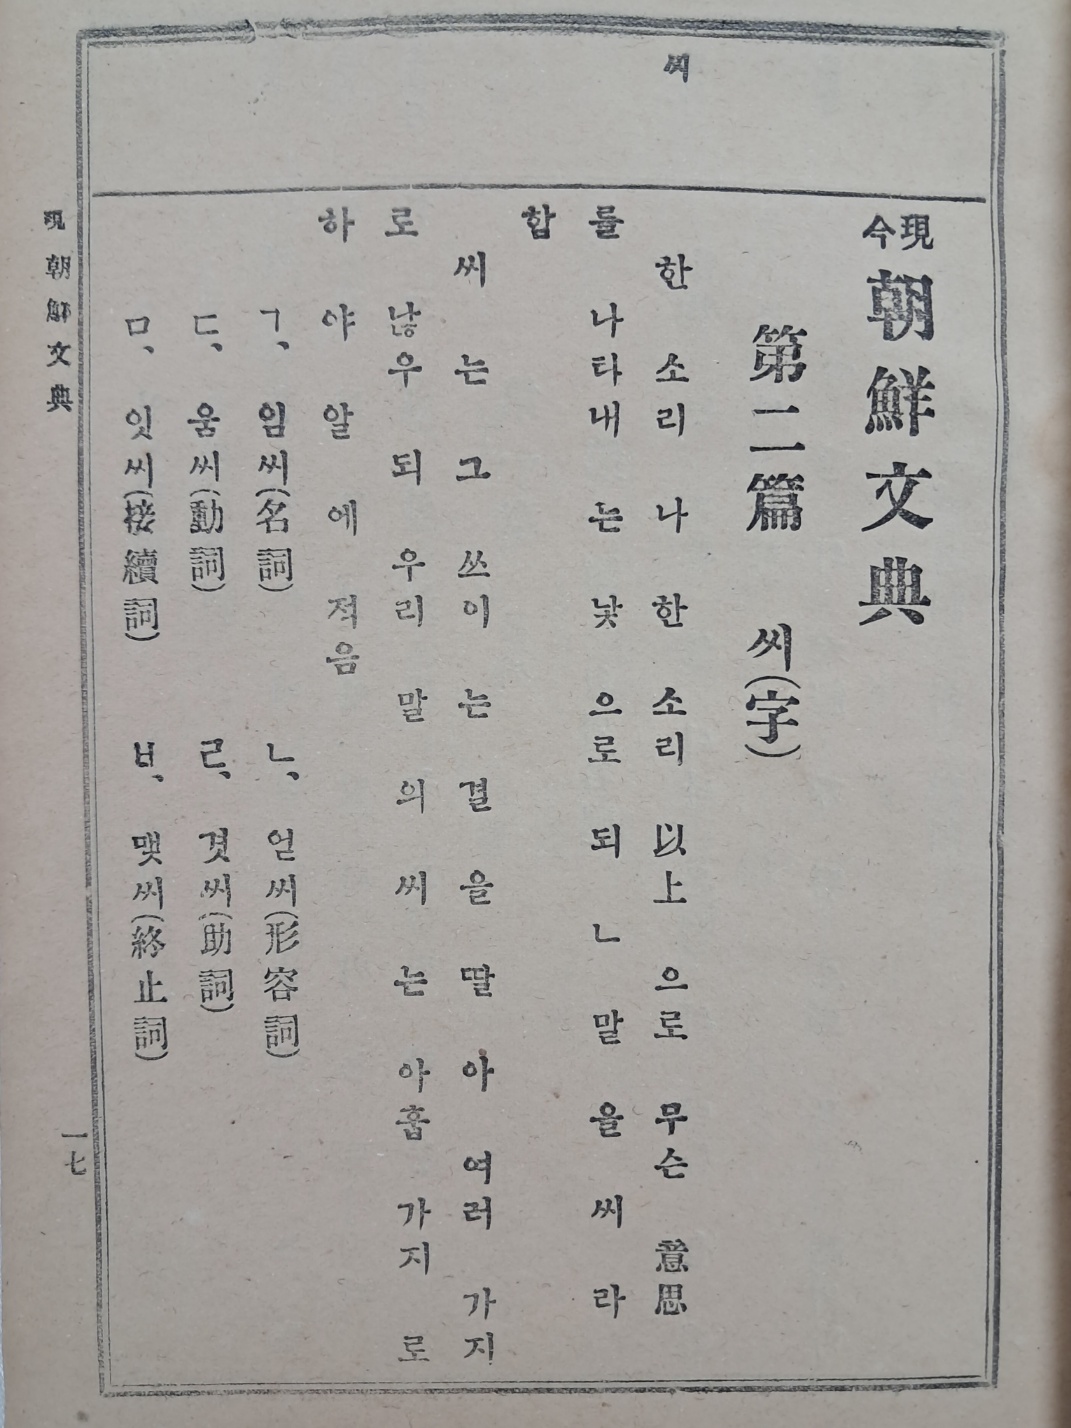 씨
現今 朝鮮文典
第二篇 씨(字)
한 소리 나 한 소리 以上 으로 무슨 意思
를 나타내 는 낯 으로 되 ㄴ 말 을 씨 라
합
씨 는 그 쓰이 는 결 을 딸 아 여러 가지
로 낞우 되 우리 말 의 씨 는 아홉 가지 로
하 야 알 에 적음
ㄱ、 임씨(名詞) ㄴ、 얻씨(形容詞)
ㄷ、 움씨(動詞) ㄹ、 겻씨(助詞)
ㅁ、 잇씨(接續詞) ㅂ、 맺씨(終止詞)
現 朝鮮文典
一七